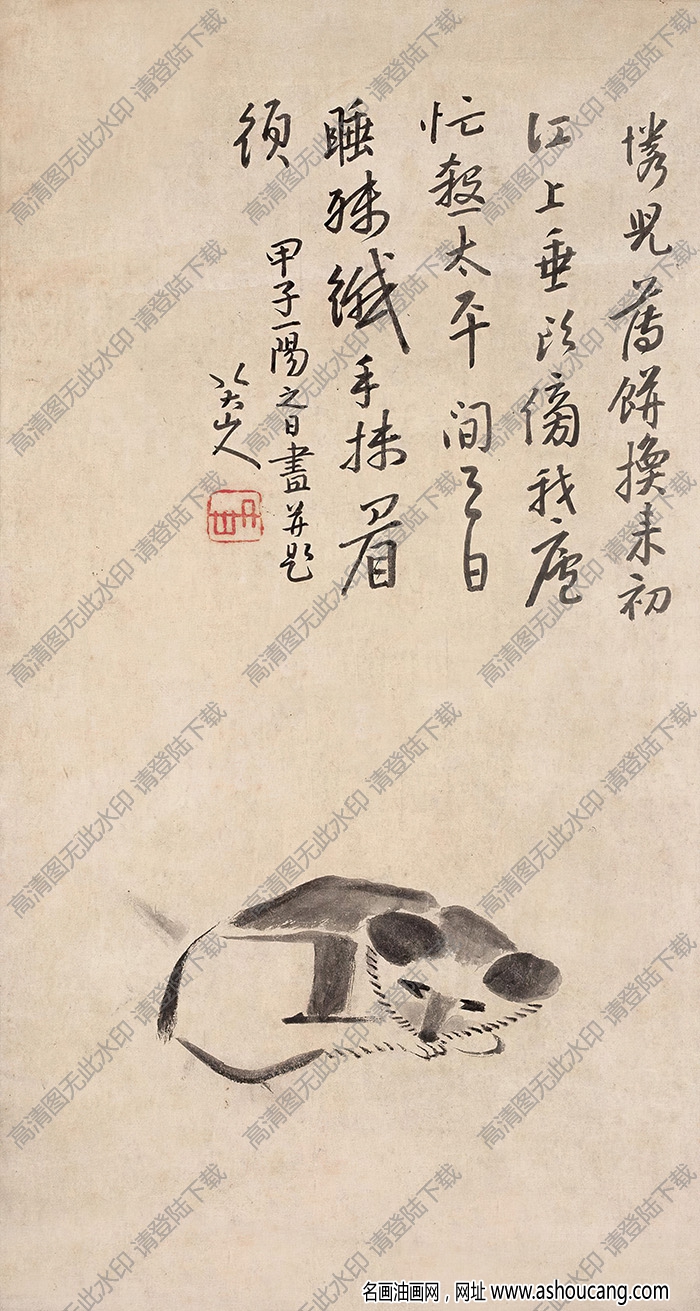 兒舊餅換来初
江上垂頭傍我廬
忙殺太平間日
睡殊纖手抹眉
須
甲子一陽之日畫并題
八大山人
高清图无此水印 请登陆下载
名画油画网，网址 www.ashoucang.com